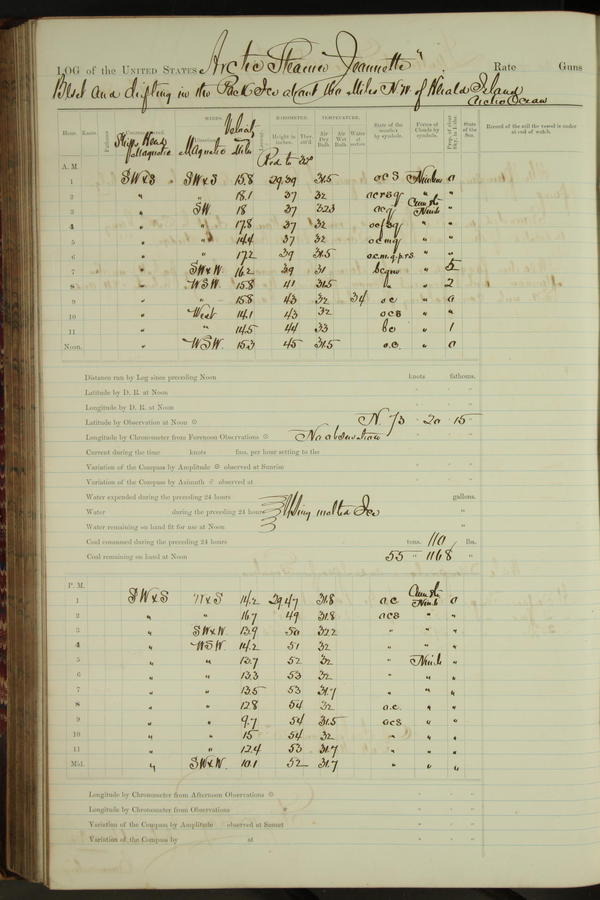 LOG of the UNITED STATES Arctic Steamer Jeannette" Rate Guns
Beset and drifting in the Pack Ice about 160 Miles N.W. of Herald Island
Arctic Ocean
WINDS. BAROMETER. TEMPERATURE.
Hour. Knots. Fathoms. Ship's Head Magnetic Magnetic Height in inches. Ther. att'd. Air Dry Bulb Air Wet Bulb Water at surface. State of the weather by symbols. Forms of Clouds by symbols. State of the Sea. Record of the sail the vessel is under at end of watch.
A. M. Red to 32°
1 SW x S SW x S 15.8 29.39 31.5 o c s Nimbus 0
2 " " 18.1 37 32 " "
3 " SW 18 37 32.3 o c q Cum Str Nimb "
4 " " 17.8 37 32 " "
5 " " 14.4 37 32 o c m q " "
6 " " 17.2 39 31.5 o.c.m.q.p.s. " "
7 " SW x W. 16.2 39 31 b c q m " 5
8 " WSW. 15.8 41 31.5 " " 2
9 " " 15.8 43 32 34 o c " 0
10 " West 14.1 43 32 o c s " "
11 " " 14.5 44 33 b c " 1
Noon. " WSW. 15.3 45 31.5 o.c. " 0
Distance run by Log since preceding Noon knots fathoms.
Latitude by D. R. at Noon
Longitude by D. R. at Noon
Latitude by Observation at Noon N. 73 20 15
Longitude by Chronometer from Forenoon Observations No observation
Current during the time knots fms. per hour setting to the
Variation of the Compass by Amplitude observed at Sunrise
Variation of the Compass by Azimuth observed at
Water expended during the preceding 24 hours gallons.
Water during the preceding 24 hours Using melted Ice "
Water remaining on hand fit for use at Noon "
Coal consumed during the preceding 24 hours tons. 110 lbs.
Coal remaining on hand at Noon 55 " 1168 "
P. M.
1 SW x S W x S 14.2 29.47 31.8 o c Cum Str Nimb 0
2 " " 16.7 49 31.8 o c s " "
3 " SW x W. 13.9 50 32.2 " " "
4 " WSW. 14.2 51 32 " " "
5 " " 13.7 52 32 " Nimb "
6 " " 13.3 53 32 " " "
7 " " 13.5 53 31.7 " " "
8 " " 12.8 54 32 o.c. " "
9 " " 9.7 54 31.5 o c s " "
10 " " 15 54 32 " " "
11 " " 12.4 53 31.7 " " "
Mid. " SW x W. 10.1 52 31.7 " " "
Longitude by Chronometer from Afternoon Observations
Longitude by Chronometer from Observations
Variation of the Compass by Amplitude observed at Sunset
Variation of the Compass by at